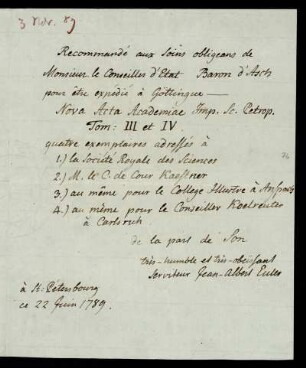 3 Nov. 89
Recommandé aux Soins obligeans de
Monsieur le Conseiller d'Etat Baron d'Asch
pour être expedié à Göttingue —
Nova Acta Academiae Imp. Sc. Petrop.
Tom: III et IV
quatre exemplaires adressés à
1.) la Société Royale des Sciences
2.) M. le C. de Cour Kaestner
3.) au même pour le College Illustre à Anspach
4.) au même pour le Conseiller Koelreuter
à Carlsruh
de la part de Son
très-humble et très-obeissant
Serviteur Jean-Albert Euler
à St. Pétersbourg
ce 22 Juin 1789.